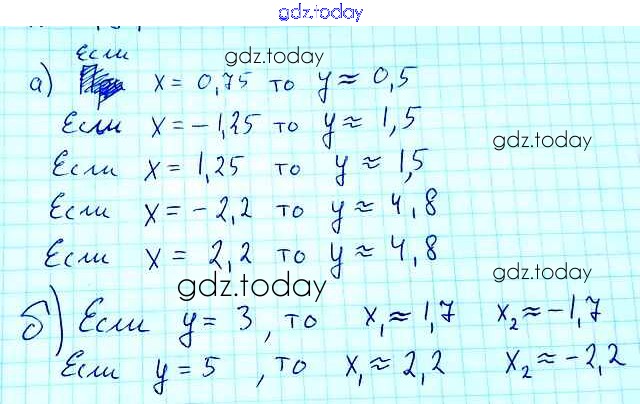 gdz.today
Если
gdz.today
а) x = 0,75 то y ≈ 0,5
Если x = -1,25 то y ≈ 1,5
gdz.today
Если x = 1,25 то y ≈ 1,5
Если x = -2,2 то y ≈ 4,8
Если x = 2,2 то y ≈ 4,8
gdz.today
gdz.today
б) Если y = 3, то x₁ ≈ 1,7 x₂ ≈ -1,7
Если y = 5, то x₁ ≈ 2,2 x₂ ≈ -2,2